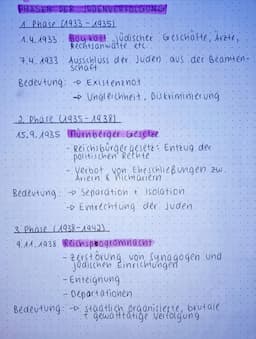 PHASEN DER JUDENVERFOLGUNG
1. Phase (1933 - 1935)
1.4.1933 Boykott jüdischer Geschäfte, Ärzte,
Rechtsanwälte etc.
7.4.1933 Ausschluss der Juden aus der Beamten-
schaft
Bedeutung: → Existenznot
→ Ungleichheit, Diskriminierung
2. Phase (1935 - 1938)
15.9.1935 Nürnberger Gesetze
- Reichsbürgergesetz: Entzug der
politischen Rechte
- Verbot von Eheschließungen zw.
Ariern & Nichtariern
Bedeutung: → Separation + Isolation
→ Entrechtung der Juden
3. Phase (1938 - 1942)
9.11.1938 Reichspogromnacht
- Zerstörung von Synagogen und
jüdischen Einrichtungen
- Enteignung
- Deportationen
Bedeutung: → staatlich organisierte, brutale
+ gewalttätige Verfolgung